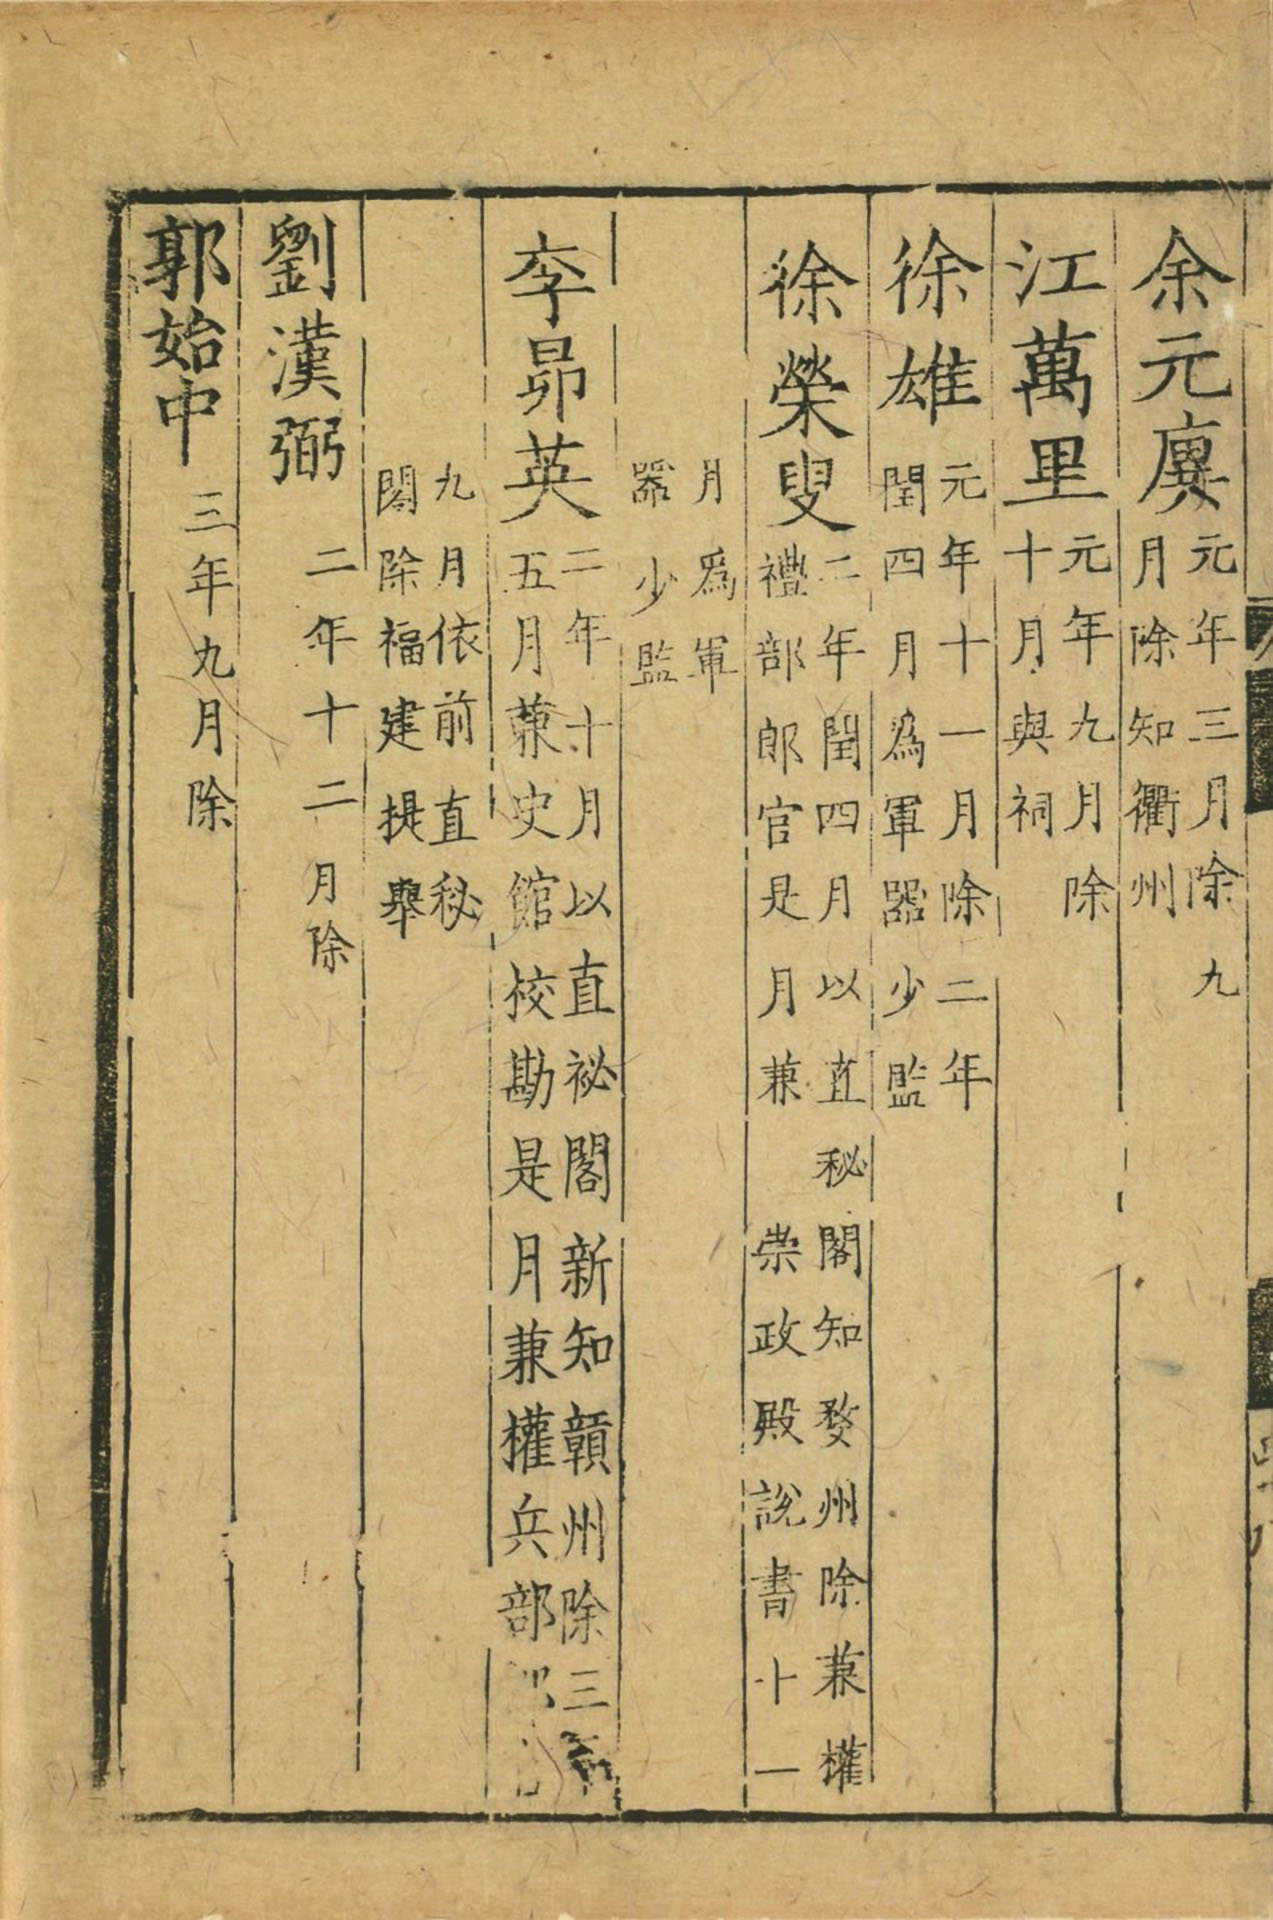 余元廙元年三月除九
月除知衢州
江萬里元年九月除
十月與祠
徐雄元年十一月除二年
閏四月爲軍器少監
徐榮叟二年閏四月以直秘閣知婺州除兼權
禮部郎官是月兼崇政殿說書十一
月爲軍
器少監
李昴英二年十月以直祕閣新知贛州除三年
五月兼史館校勘是月兼權兵部
九月依前直秘
閣除福建提舉
劉漢弼二年十二月除
郭始中三年九月除